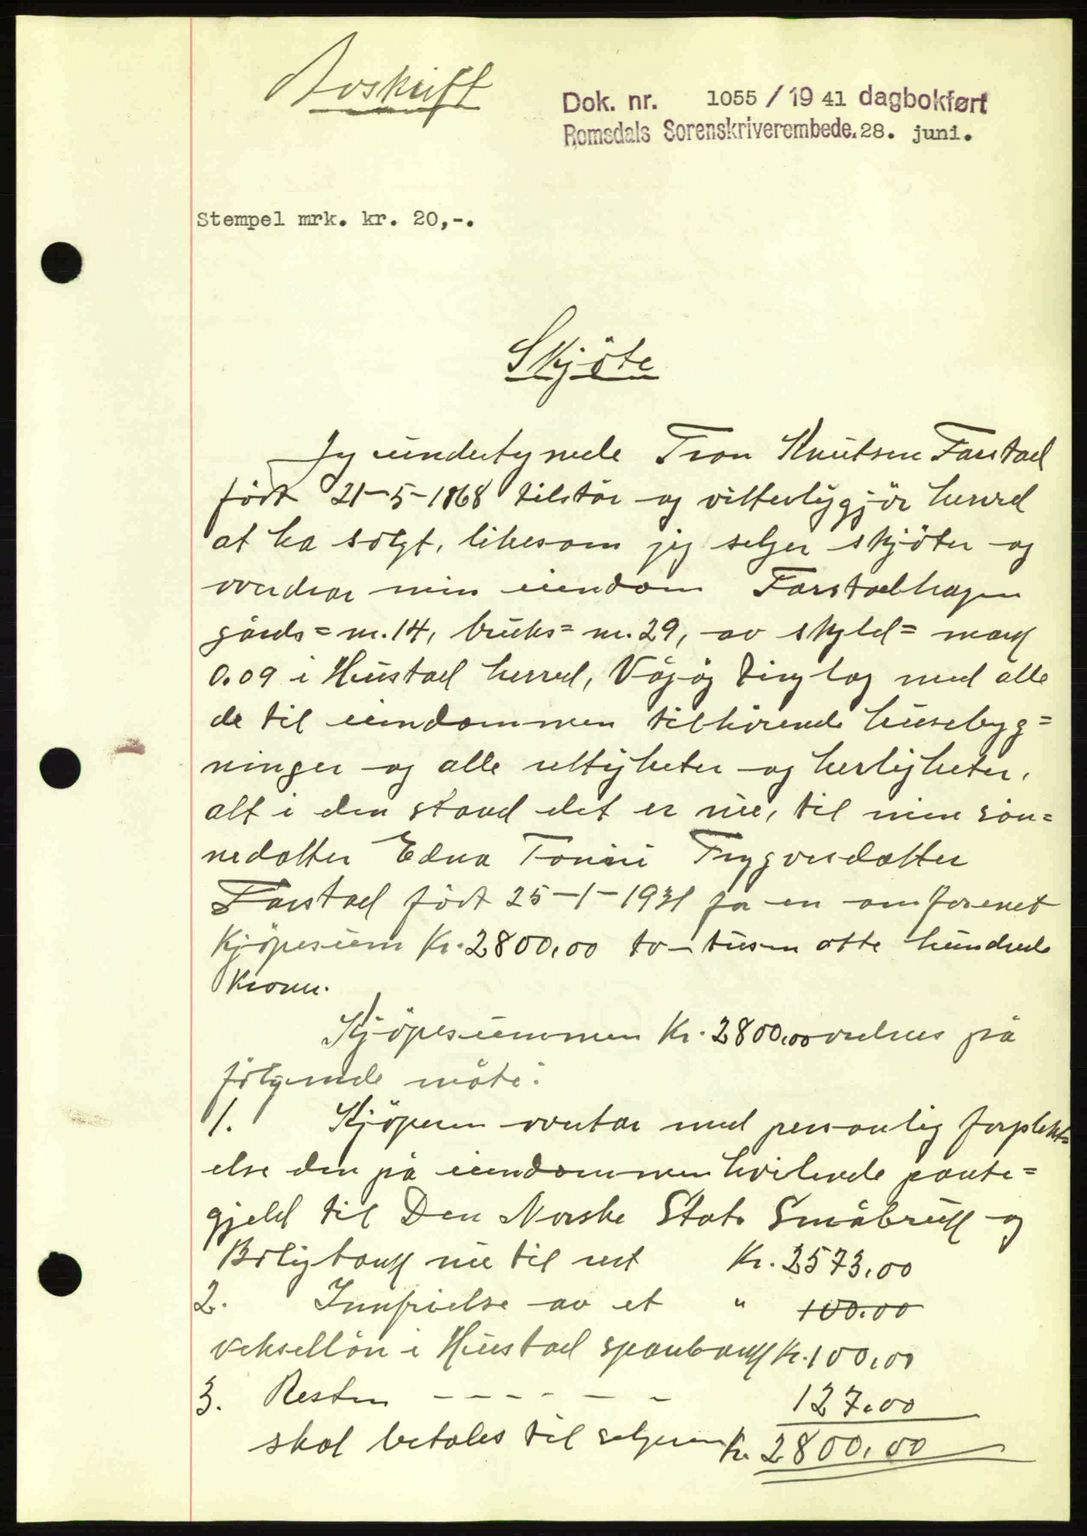 Avskrift
Dok. nr. 1055 / 19 41 dagbokført
Romsdals Sorenskriverembede. 28. juni.
Stempel mrk. kr. 20,-.
Skjöte
Jeg undertegnede Tron Knutsen Farstad
født 21-5-1868 tilstår og vitterliggjör herved
at ha solgt, likesom jeg selger skjöter og
overdrar min eiendom Farstadhagen
gårds= nr. 14, bruks= nr. 29, av skyld= mark
0.09 i Hustad herred, Vågøy tinglag med alle
de til eiendommen tilhörende husebyg=
ninger og alle rettigheter og herligheter,
alt i den stand det er nu, til min sön=
nedatter Edna Tonini Trygvesdatter
Farstad født 25-1-1931 for en omforenet
Kjöpesum Kr. 2800,00 to-tusen otte hundrede
Kroner.
Kjöpesummen Kr. 2800,00 ordnes på
fölgende måte:
1. Kjöperen overtar med personlig forplikt=
else den på eiendommen hvilende pante=
gjeld til Den Norske Stats Småbruk og
Boligbank nu til rest Kr. 2573,00
2. Innfrielse av et " 100.00
veksellån i Hustad sparebank Kr. 100,00
3. Resten - - - - - - 127.00
skal betales til selgeren Kr. 2800,00